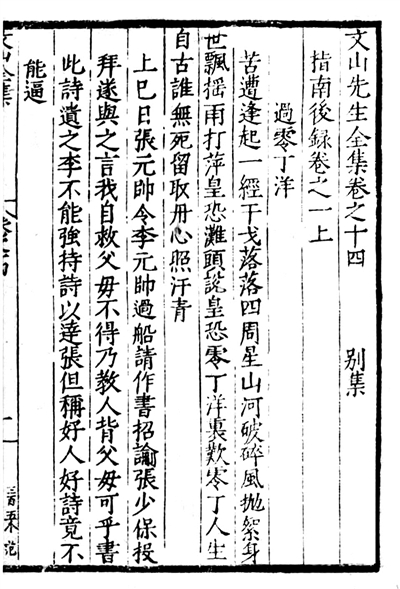 文山先生全集卷之十四　別集
指南後録卷之一上
過零丁洋
苦遭逢起一經干戈落落四周星山河破碎風抛絮身
世飄摇雨打萍皇恐灘頭說皇恐零丁洋裏歎零丁人生
自古誰無死留取丹心照汗青
上巳日張元帥令李元帥過船請作書招諭張少保投
拜遂與之言我自救父母不得乃教人背父母可乎書
此詩遺之李不能強持詩以達張但稱好人好詩竟不
能逼